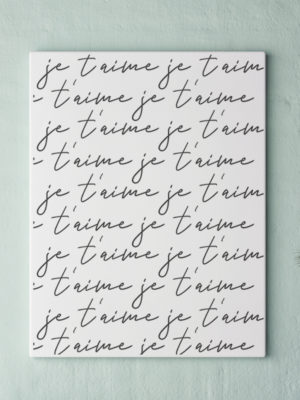 je t'aime je t'aim
e t'aime je t'aime
je t'aime je t'aim
e t'aime je t'aime
je t'aime je t'aim
e t'aime je t'aime
je t'aime je t'aim
e t'aime je t'aime
je t'aime je t'aim
e t'aime je t'aime